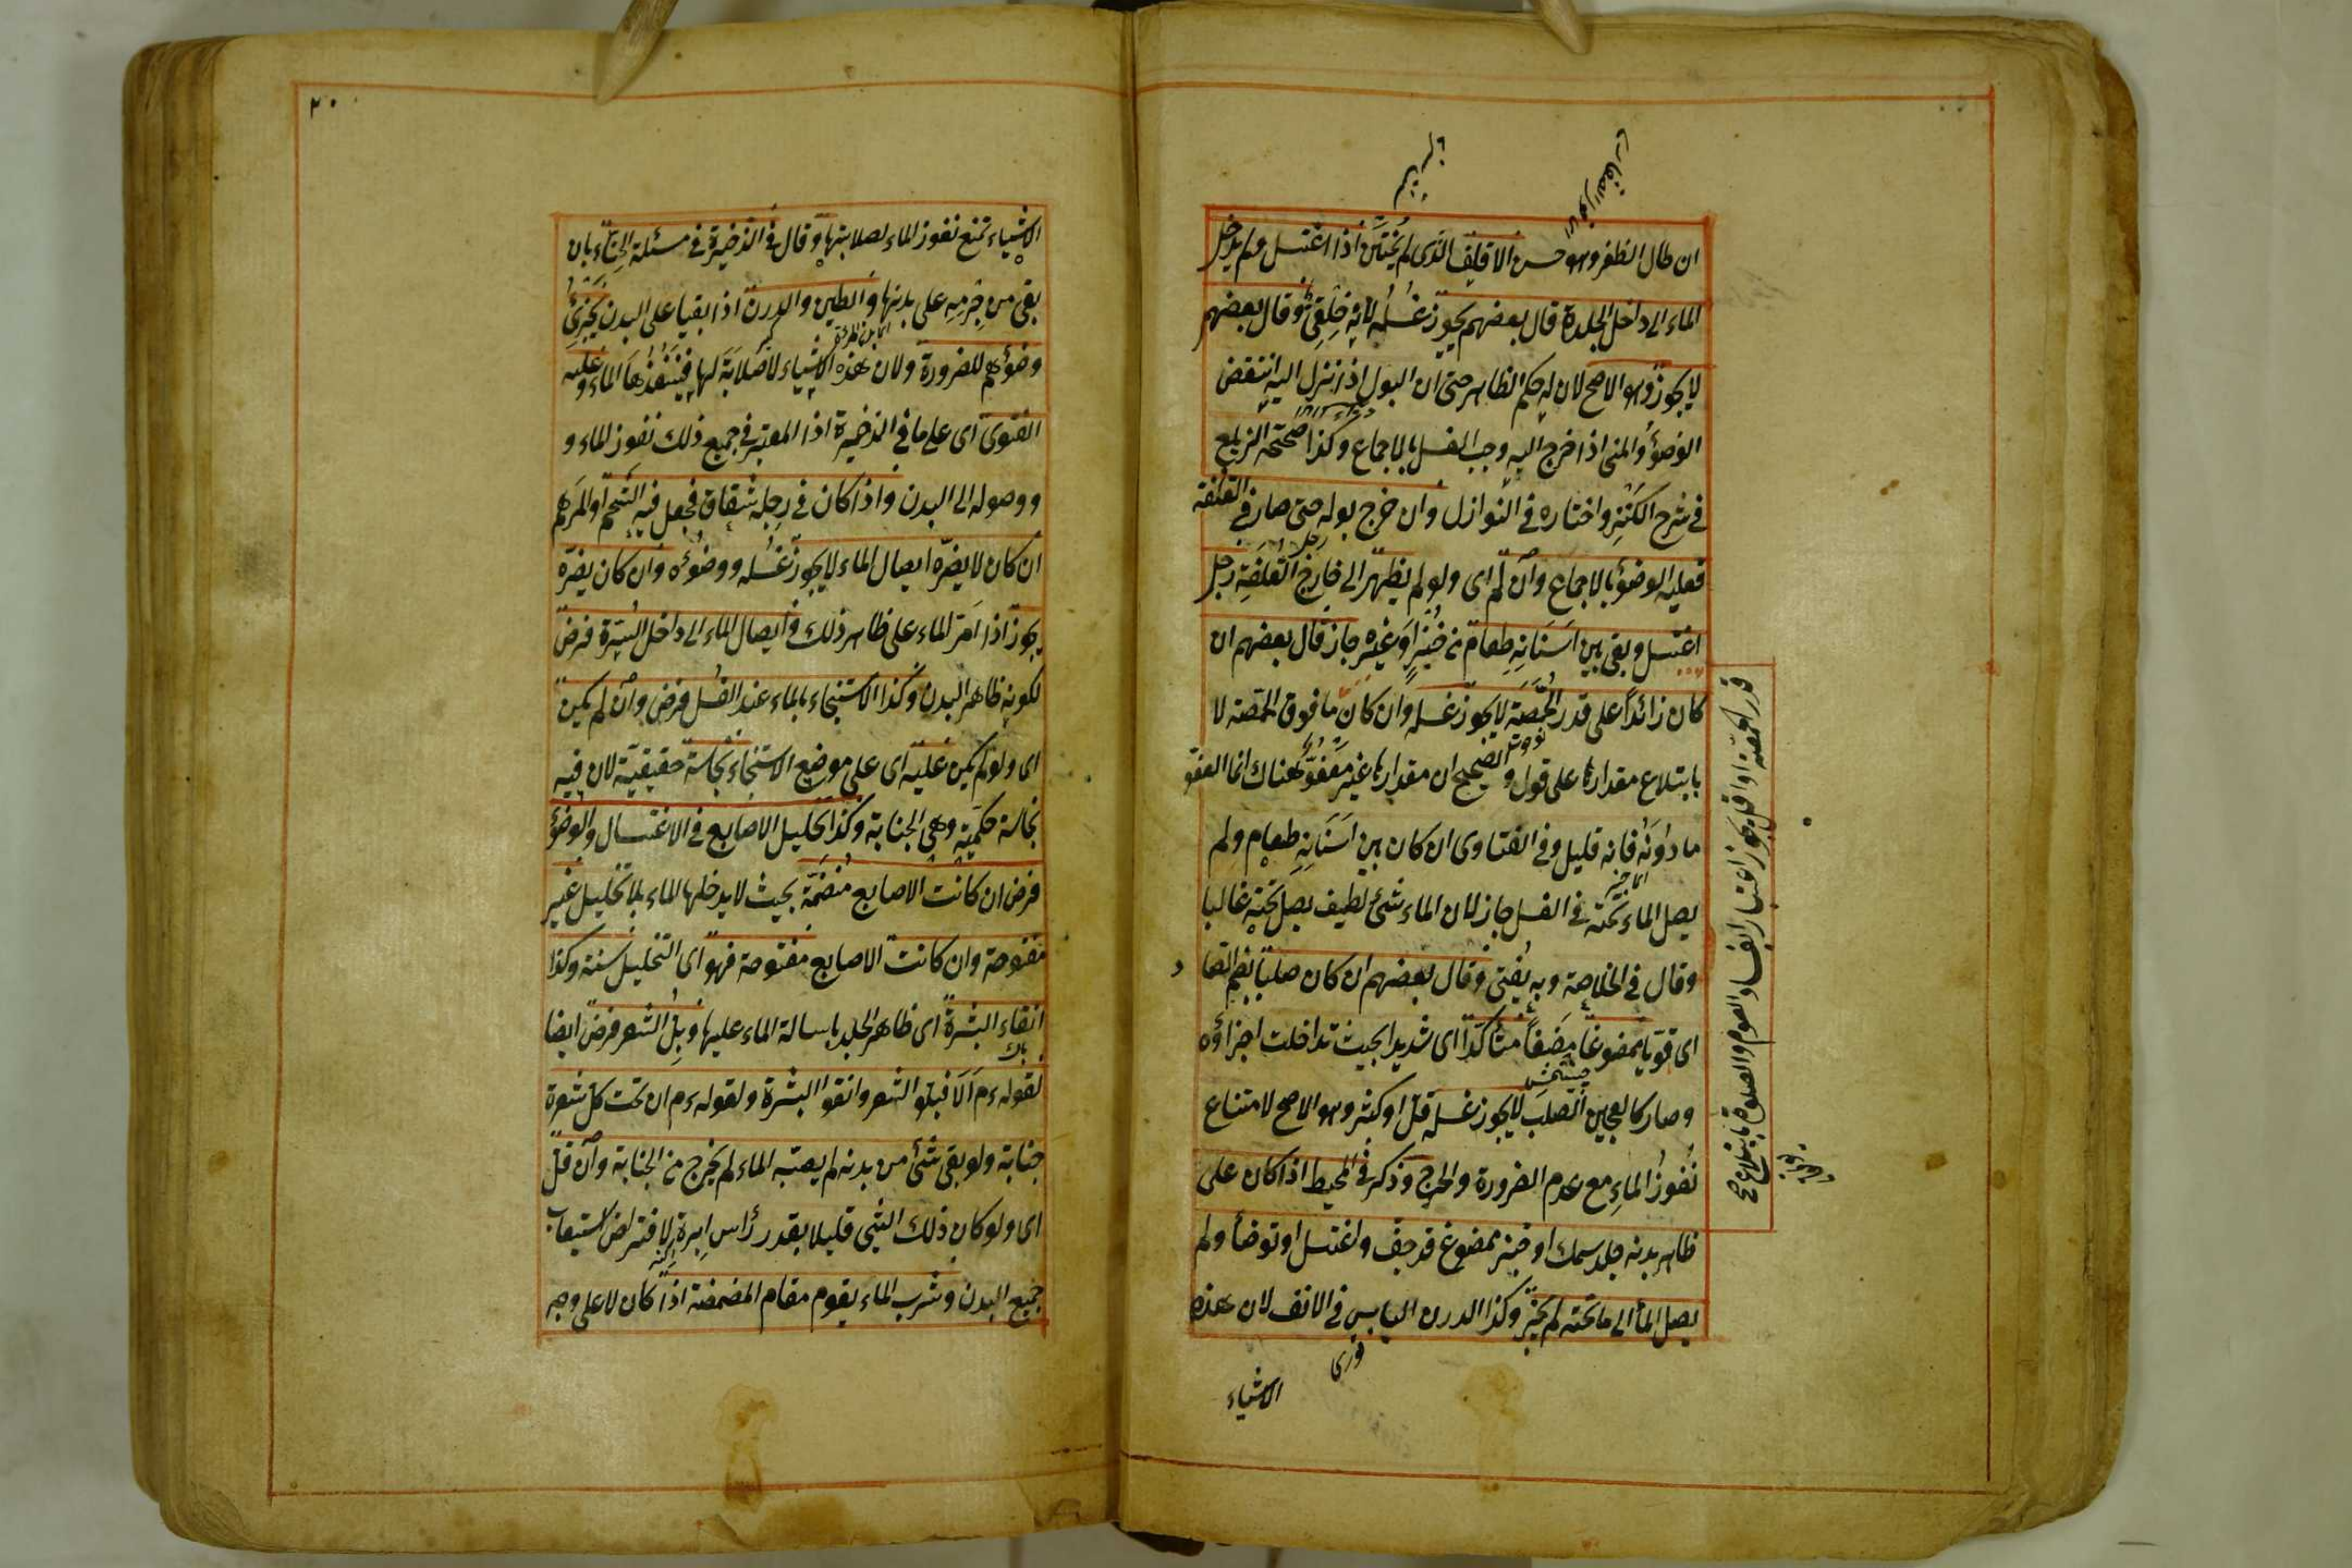 ان طال الظفر وهو حسن الاقلف الذى لم يختتن اذا اغتسل ولم يدخل
الماء الى داخل الجلدة قال بعضهم يجوز غسله لانه خلقى وقال بعضهم
لا يجوز وهو الاصح لان له حكم الظاهر حتى ان البول اذا نزل اليه انتقض
الوضوء والمنى اذا خرج اليه وجب الغسل بالاجماع وكذا صححه الزيلعى
فى شرح الكنز واختاره فى النوازل وان خرج بوله حتى صار فى القلفة
فعليه الوضوء بالاجماع وان لم اى ولو لم يظهر الى خارج القلفة رجل
اغتسل وبقى بين اسنانه طعام من خبز او غيره جاز قال بعضهم ان
كان زائدا على قدر الحمصة لا يجوز غسله وان كان ما فوق الحمصة لا
بابتلاع مقدارها على قول والصحيح ان مقدارها غير معفو هناك انما العفو
ما دونه فانه قليل وفى الفتاوى ان كان بين اسنانه طعام ولم
يصل الماء تحته فى الغسل جاز لان الماء شئ لطيف يصل تحته غالبا
وقال فى الخلاصة وبه يفتى وقال بعضهم ان كان صلبا بضم الصاد
اى قويا ممضوغا مضغا متأكدا اى شديدا بحيث تداخلت اجزاؤه
وصار كالعجين الصلب لا يجوز غسله قل او كثر وهو الاصح لامتناع
نفوذ الماء مع عدم الضرورة والحرج وذكر فى المحيط اذا كان على
ظاهر بدنه جلد سمك او خبز ممضوغ قد جف واغتسل او توضأ ولم
يصل الماء الى ما تحته لم يجز وكذا الدرن اليابس فى الانف لان هذه
الاشياء
قدر الحمصة او اقل يجوز اعتبارا بفساد الصوم والصلوة بابتلاع صح
٢٠
الاشياء تمنع نفوذ الماء لصلابتها وقال فى الذخيرة فى مسئلة الحناء بان
بقى من جرمه على بدنها والطين والدرن اذا بقيا على البدن يجزئ
وضوءهم للضرورة ولان هذه الاشياء لا صلابة لها فينفذها الماء وعليه
الفتوى اى على ما فى الذخيرة اذا المعتبر فى جميع ذلك نفوذ الماء و
ووصوله الى البدن واذا كان فى رجله شقاق فجعل فيه الشحم او المرهم
ان كان لا يضره ايصال الماء لا يجوز غسله ووضوئه وان كان يضره
يجوز اذا امر الماء على ظاهر ذلك وايصال الماء الى داخل السرة فرض
لكونه ظاهر البدن وكذا الاستنجاء بالماء عند الغسل فرض وان لم يكن
اى ولو لم يكن عليه اى على موضع الاستنجاء نجاسة حقيقية لان فيه
نجاسة حكمية وهى الجنابة وكذا تخليل الاصابع فى الاغتسال والوضوء
فرض ان كانت الاصابع منضمة بحيث لا يدخلها الماء بلا تخليل غير
مفتوحة وان كانت الاصابع مفتوحة فهو اى التخليل سنة وكذا
انقاء البشرة اى ظاهر الجلد باسالة الماء عليها وبل الشعر فرض ايضا
لقوله عم الا فبلو الشعر وانقوا البشرة ولقوله عم ان تحت كل شعرة
جنابة ولو بقى شئ من بدنه لم يصبه الماء لم يخرج من الجنابة وان قل
اى ولو كان ذلك الشئ قليلا بقدر رأس ابرة لافتراض استيعاب
جميع البدن وشرب الماء يقوم مقام المضمضة اذا كان لا على وجه